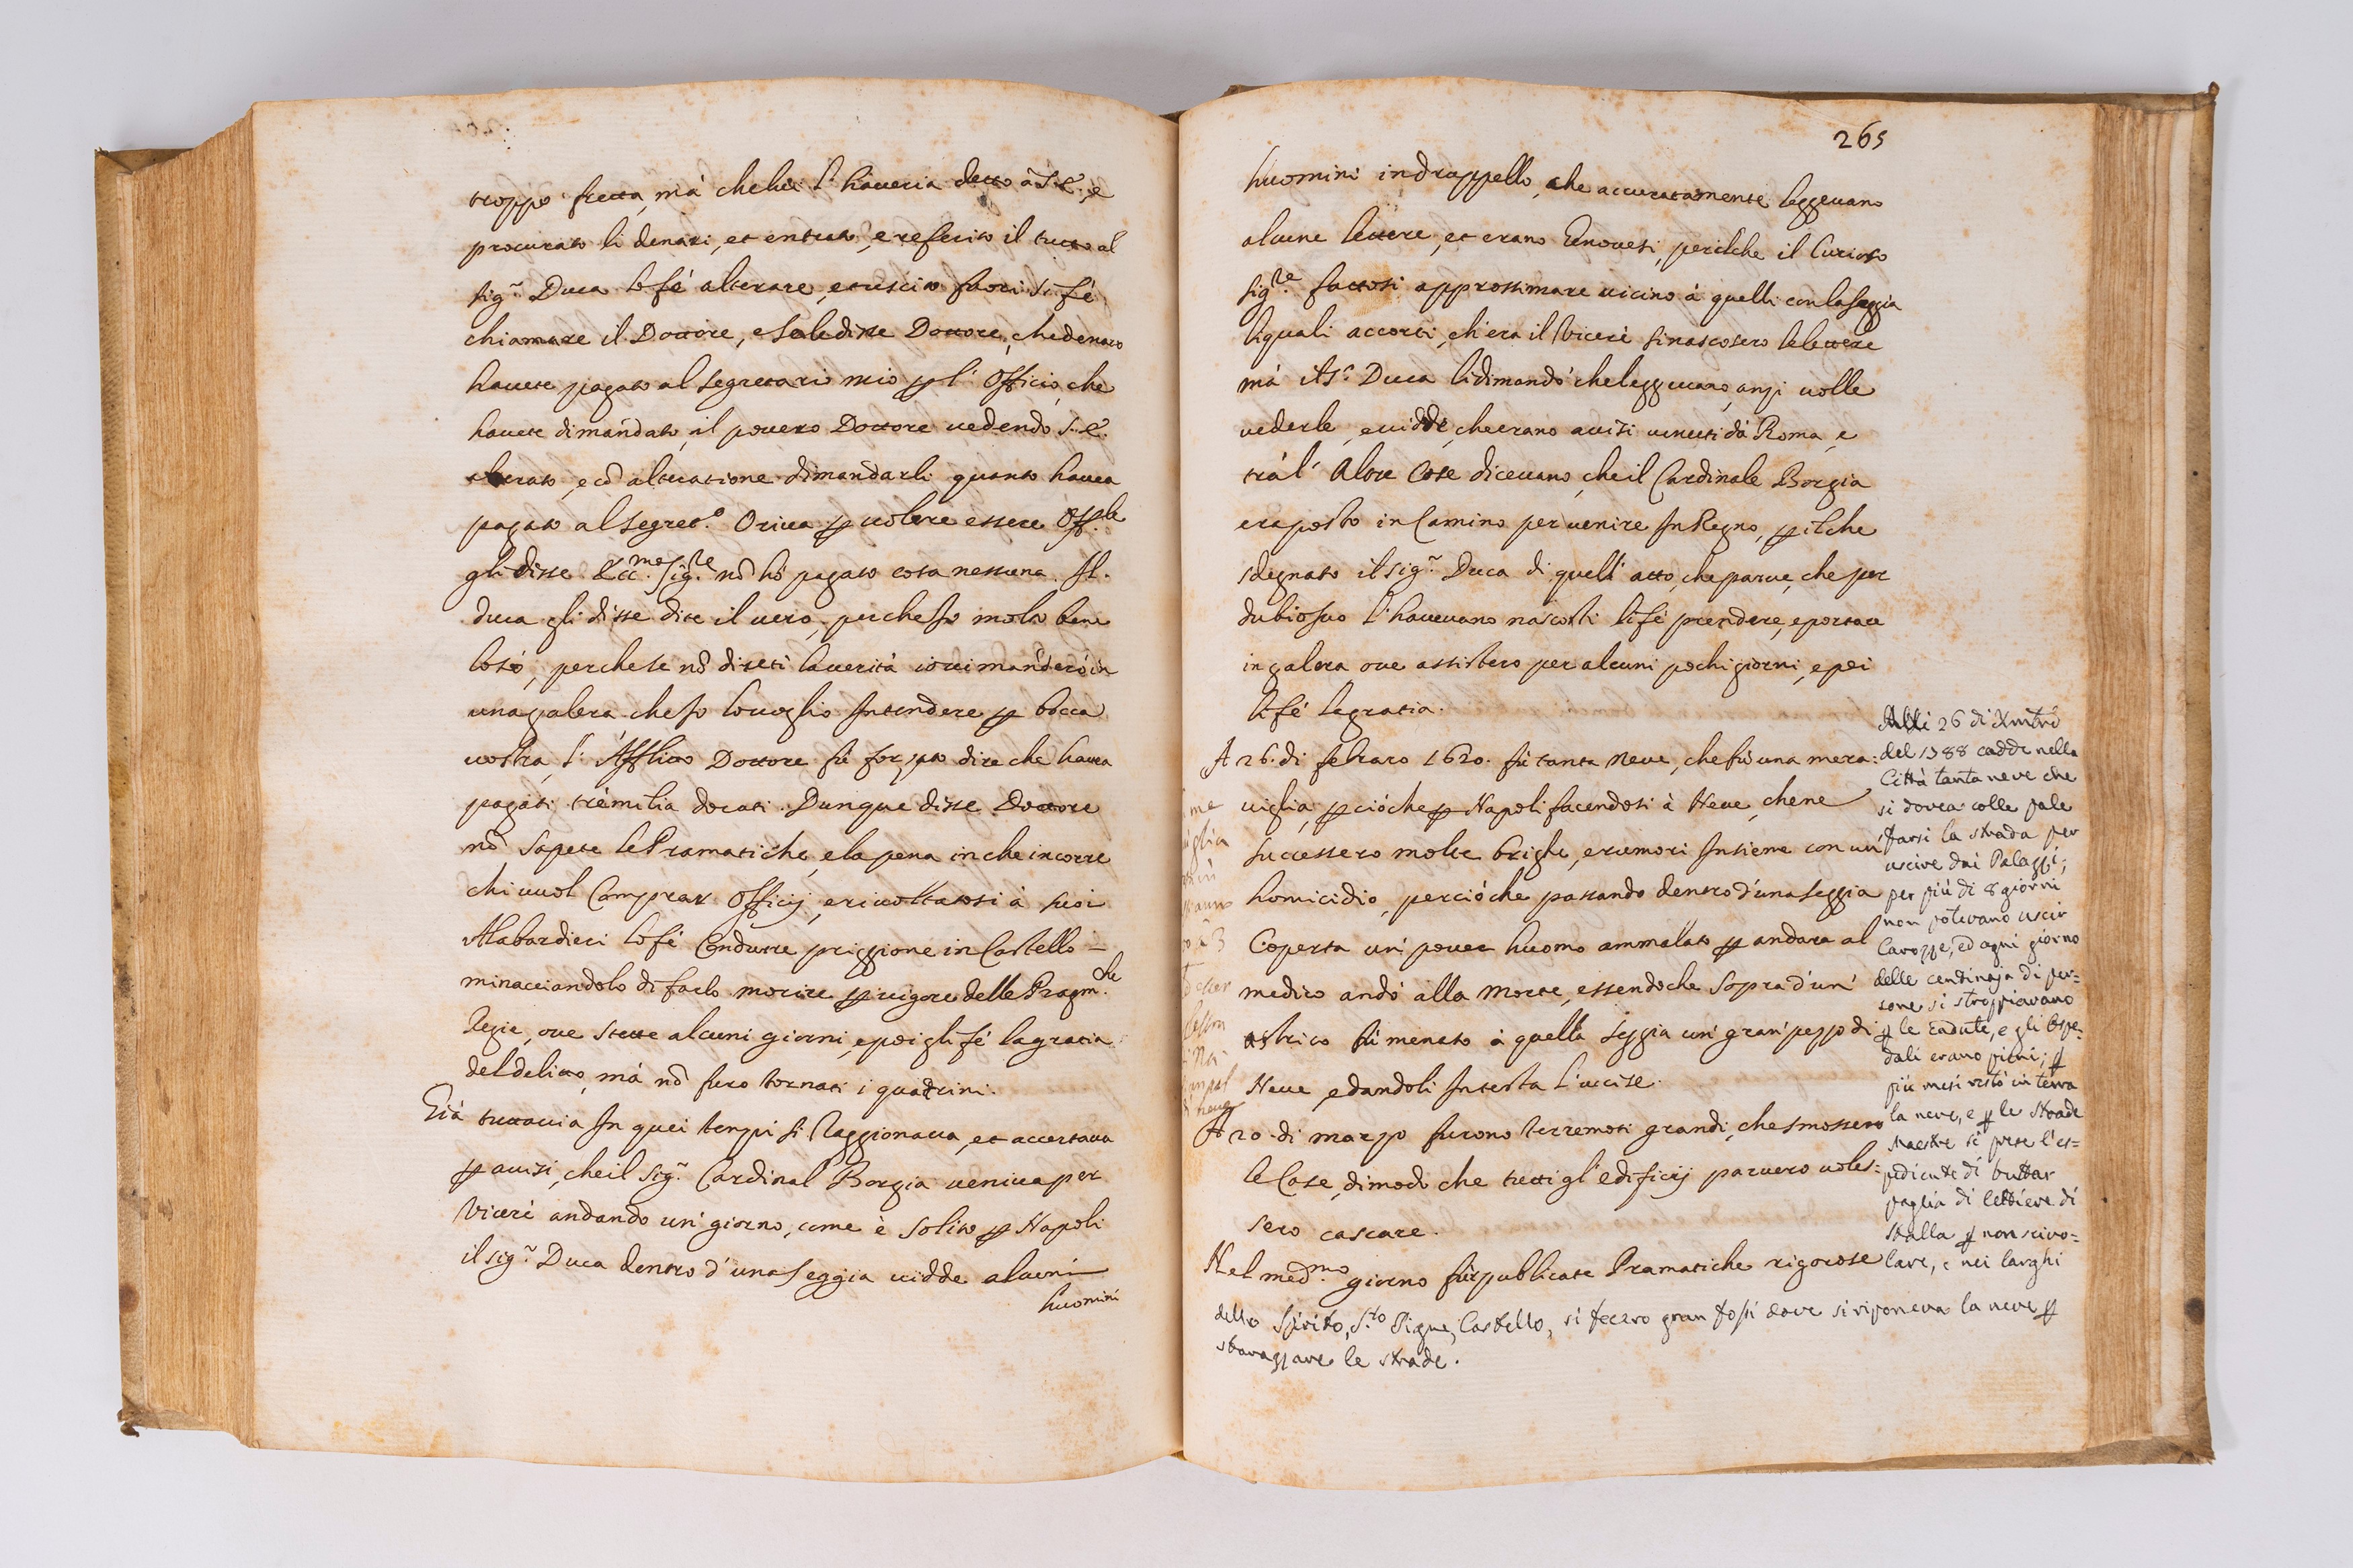 troppo fretta, má che lui l'haveria detto á S.E., e
procurato li denari, et entrato, e referito il tutto al
sig.r Duca lo fé alterare, et uscito fuori si fé
chiamare il Dottore, e se le disse Dottore, che denaro
havete pagato al segretario mio p l'officio, che
havete dimandato, il povero Dottore vedendo S.E.
alterato, e cõ alteratione dimandarli quanto havea
pagato al segret.o Oriva p volere essere Off.le
gli disse Ecc.mo Sig.re nõ hó pagato cosa nessuna. Il
duca gli disse dite il vero, perche Io molto bene
lo só, perche se nõ direti la veritá io vi manderó in
una galera che Io lo voglio Intendere p bocca
vostra, l'Afflitto Dottore fú forzato dire che havea
pagati trémilia docati. Dunque disse Dottore
nõ sapete le Pramatiche, e la pena in che incorre
chi vuol Comprar Officij, e rivoltatosi á suoi
Alabardieri lo fé Condurre priggione in Castello –
minacciandolo di farlo morire p rigore delle Pragm.che
Regie, ove stette alcuni giorni, e poi gli fé la gratia
del delitto, má nõ furo tornati i quatrini.
Giá tuttavia In quei tempi si Raggionava, et accertava
p avisi, che il sig.r Cardinal Borgia veniva per
Viceré andando un' giorno, come è solito p Napoli
il sig.r Duca dentro d'una seggia vidde alcuni
huomini
265
huomini in druppello, che accuratamente leggevano
alcune lettere, et erano Genovesi, perilche il Curioso
sig.re fattosi approssimare vicino á quelli con la seggia
li quali accorti, ch'era il Viceré si nascosero le lettere
má il S.r Duca li dimandó che leggevano, anzi volle
vederle, e vidde, che erano avisi venuti dá Roma, e
trá l'Altre Cose dicevano, che il Cardinale Borgia
era posto in Camino per venire In Regno, p ilche
sdegnato il sig.r Duca di quell'atto, che parve, che per
dubio suo l'havevano nascosti li fé prendere, e portare
in galera ove assistero per alcuni pochi giorni, e poi
li fé la gratia.
A 26. di febraro 1620. fú tanta neve, che fú una mera:
viglia, p ció che p Napoli facendosi á Neve, che ne
successero molte brighe, e rumori Insieme con un'
homicidio, perció che passando dentro d'una seggia
Coperta un' pover huomo ammalato p andare al
medico andó alla morte, essendo che sopra d'un'
astrico fú menato á quella seggia un' gran' pezzo di
Neve, e dandoli In testa l'uccise.
A 20. di marzo furono terremoti grandi, che smossero
le Case, di modo che tutti gl'edificij parvero voles:
sero cascare.
Nel med.mo giorno fúr publicate Pramatiche rigorose
Alli 26 di Xmbre
del 1788 cadde nella
Città tanta neve che
si dovea colle pale
farsi la strada per
uscire dai Palazzi;
per più di 8 giorni
non potevano uscir
Carozze, ed ogni giorno
delle centinaja di per=
sone si stroppiavano
p le cadute, e gli Ospe=
dali erano pieni; p
più mesi restò in terra
la neve, e p le strade
maestre si prese l'es=
pediente di buttar
paglia di lettiere di
stalla p non scivo=
lare, e nei larghi
dello Spirito S.to Pigne, Castello, si fecero gran fossi dove si riponeva la neve p
sbarazzare le strade.